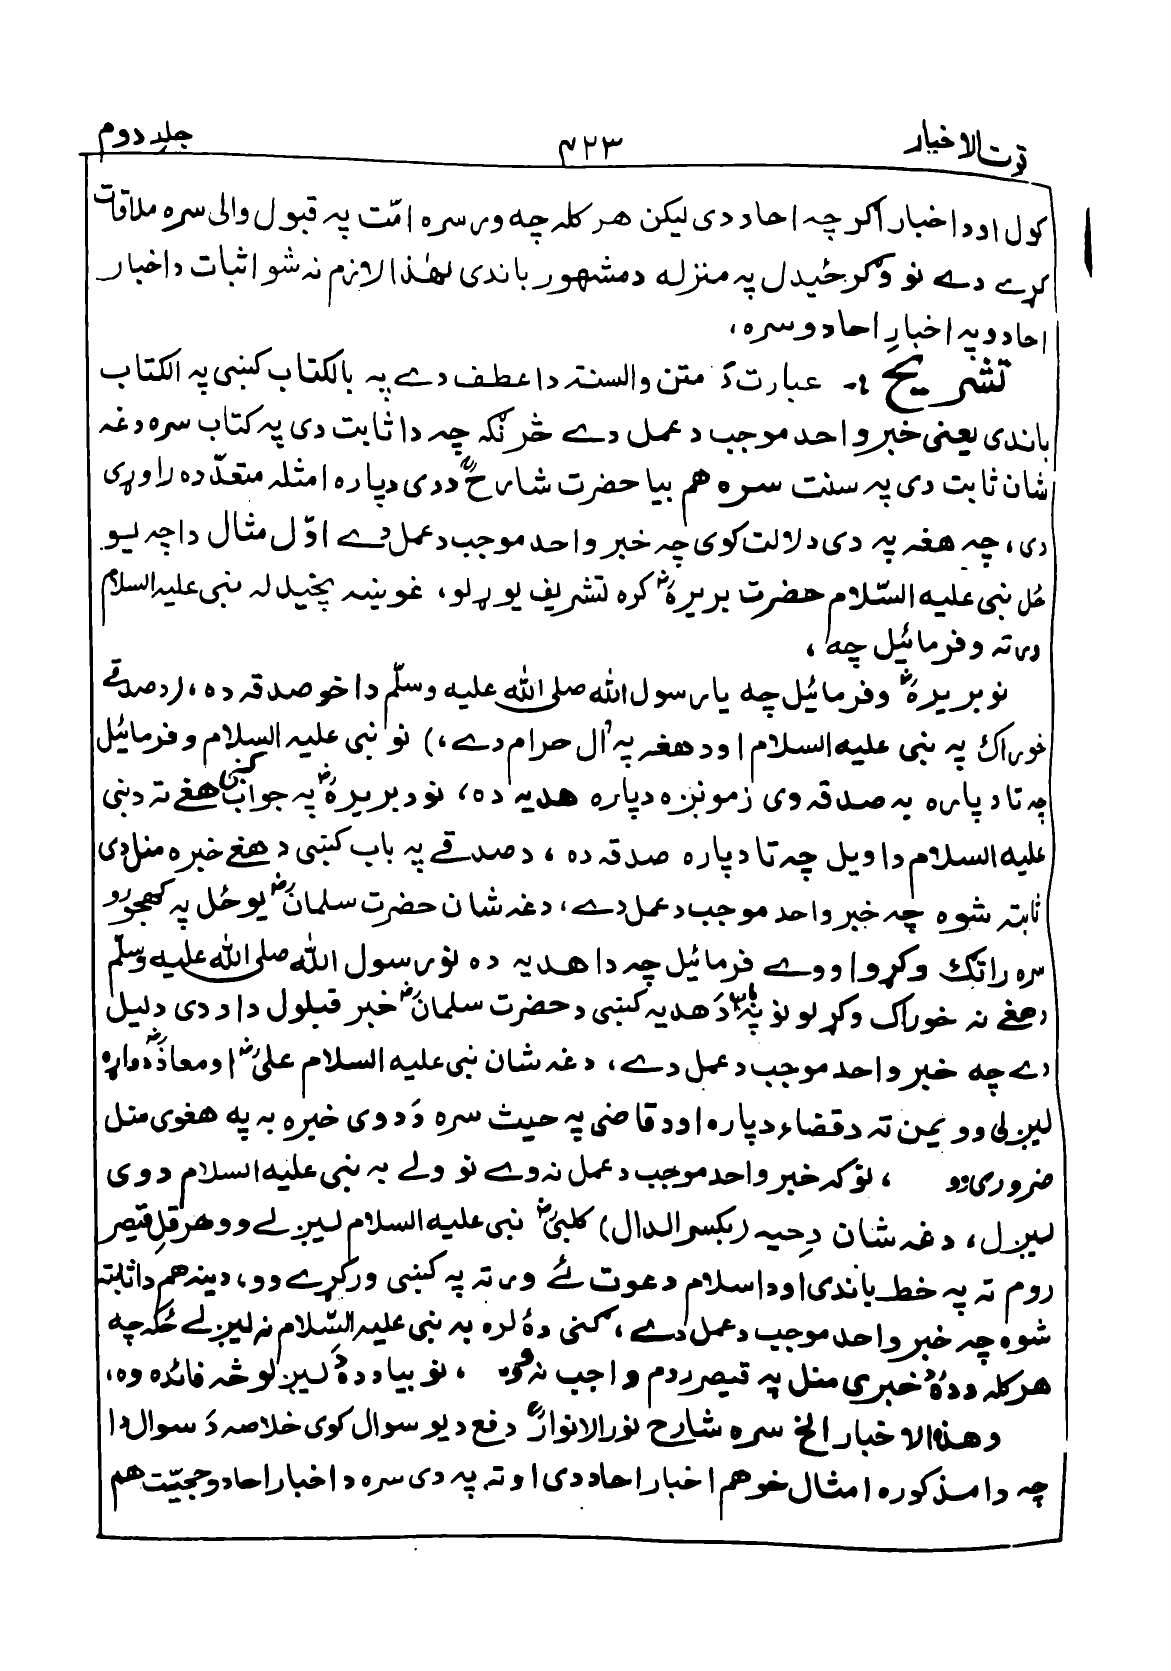 قوت الاخیار
۴۲۳
جلد دوم
کول اودا خبار اګرچه احاد دی لیکن هرکله چه ورسره امّت په قبول والی سره ملاقات
کړے دے نو وګرځیدل په منزله دمشهور باندی لهٰذا لازم نه شو اثبات داخبار
احادو په اخبارِ احادو سره،
تشریح :- عبارت دَ متن والسنة دا عطف دے په بالکتاب کښی په الکتاب
باندی یعنی خبر واحد موجب دعمل دے څرنګه چه دا ثابت دی په کتاب سره دغه
شان ثابت دی په سنت سره هم بیا حضرت شارحؒ ددی دپاره امثله متعدّده راوړی
دی، چه هغه په دی دلالت کوی چه خبر واحد موجب دعمل دے اوّل مثال داچه یو
ځل نبی علیه السّلام حضرت بریرةؓ کره تشریف یوړلو، غوښه پخیدل له نبی علیه السلام
ورته وفرمائیل چه،
نو بریرةؓ وفرمائیل چه یارسول الله صلی الله علیه وسلّم داخو صدقه ده، (دصدقے
خوراک په نبی علیه السلام اودهغه په آل حرام دے،) نو نبی علیه السلام وفرمائیل
چه تا دپاره به صدقه وی زمونږه دپاره هدیه ده، نو دبریرةؓ په جواب کښی هغے ته دنبی
علیه السلام داویل چه تا دپاره صدقه ده، دصدقے په باب کښی دهغے خبره منل دی
ثابته شوه چه خبر واحد موجب دعمل دے، دغه شان حضرت سلمانؓ یوځل په کهجورو
سره راتګ وکړو او وے فرمائیل چه دا هدیه ده نو رسول الله صلی الله علیه وسلّم
دهغے نه خوراک وکړلو نو په باب دَهدیه کښی دحضرت سلمانؓ خبر قبلول داو دی دلیل
دے چه خبر واحد موجب دعمل دے، دغه شان نبی علیه السلام علیؓ او معاذؓ دواړه
لیږلی وو یمن ته دقضاء دپاره اودقاضی په حیث سره دَدوی خبره به په هغوی منل
ضروری وو ، نو که خبر واحد موجب دعمل نه وے نو ولے به نبی علیه السلام دوی
لیږل، دغه شان دِحیه (بکسر الدال) کلبیؓ نبی علیه السلام لیږلے وو هرقل قیصر
روم ته په خط باندی اودا سلام دعوت ئے ورته په کښی ورکړے وو، دینه هم دا ثابته
شوه چه خبر واحد موجب دعمل دے، کنی دۀ لره به نبی علیه السّلام نه لیږلے ځکه چه
هرکله ددۀ خبری منل په قیصر روم واجب نه وو ، نو بیا ددۀ لیږلو څه فائده وه،
وهذه الاخبار الخ سره شارح نور الانوارؒ دفع دیو سوال کوی خلاصه دَ سوال دا
چه دا مذکوره امثال خو هم اخبار احاد دی او ته په دی سره داخبار احادو حجیّت هم